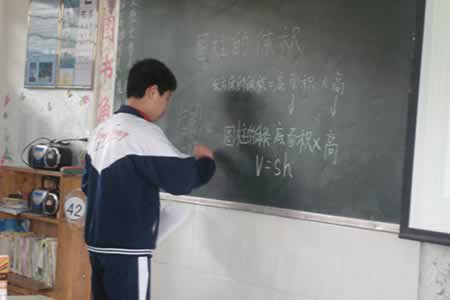 圆柱的体积
长方体的体积=底面积×高
圆柱的体积=底面积×高
V=sh
图书角
42